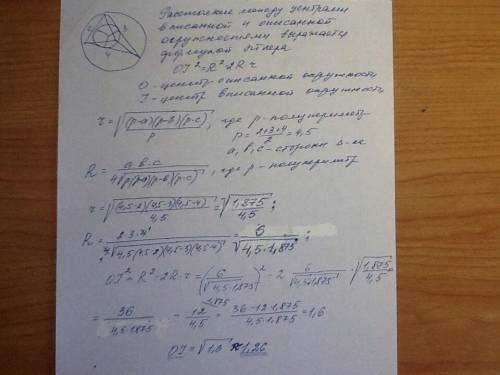 Расстояние между центрами
вписанной и описанной
окружностями выражается
формулой Эйлера
OI² = R² - 2Rr
O - центр описанной окружности,
I - центр вписанной окружности
3
4
r = √((p-a)(p-b)(p-c) / p), где p - полупериметр
p = (2+3+4)/2 = 4,5
a, b, c - стороны
R = a·b·c / 4√(p(p-a)(p-b)(p-c)), где p - полупериметр
r = √((4,5-2)(4,5-3)(4,5-4) / 4,5) = √(1,875 / 4,5);
R = 2·3·4 / 4√(4,5(4,5-2)(4,5-3)(4,5-4)) = 6 / √(4,5·1,875);
OI² = R² - 2R·r = (6 / √(4,5·1,875))² - 2 6 / √(4,5·1,875) · √(1,875 / 4,5)
= 36 / 4,5·1,875 - 12 / 4,5 = 36-12·1,875 / 4,5·1,875 = 1,6
OI = √1,6 ≈ 1,26